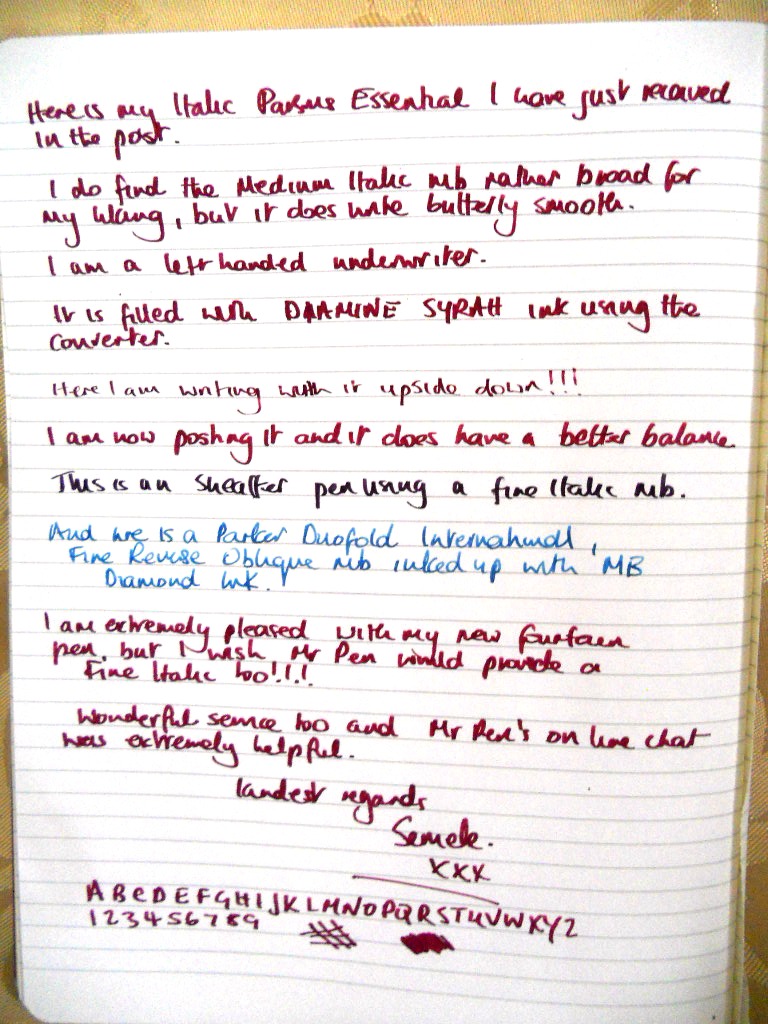 Here is my Italic Parsus Essential I have just received
in the post.
I do find the Medium Italic nib rather broad for
my liking, but it does write butterly smooth.
I am a left handed underwriter.
It is filled with DIAMINE SYRAH ink using the
converter.
Here I am writing with it upside down!!!
I am now posting it and it does have a better balance
This is an Sheaffer pen using a fine Italic nib.
And here is a Parker Duofold International,
Fine Reverse Oblique nib inked up with MB
Diamond ink.
I am extremely pleased with my new fountain
pen, but I wish Mr Pen would provide a
Fine Italic too!!!!
Wonderful service too and Mr Pen's on line chat
was extremely helpful.
kindest regards
Semele.
xxx
ABCDEFGHIJKLMNOPQRSTUVWXYZ
123456789